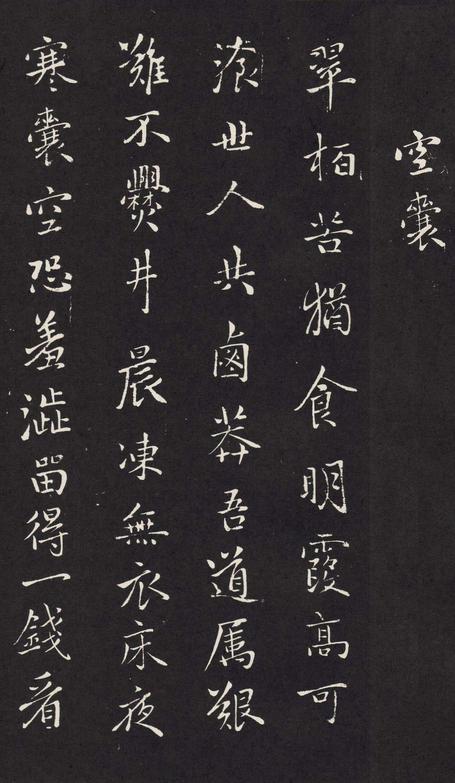 空囊
翠栢苦猶食明霞髙可
湌世人共鹵莽吾道属艱
難不爨井晨凍無衣床夜
寒囊空恐羞澁畱得一錢看